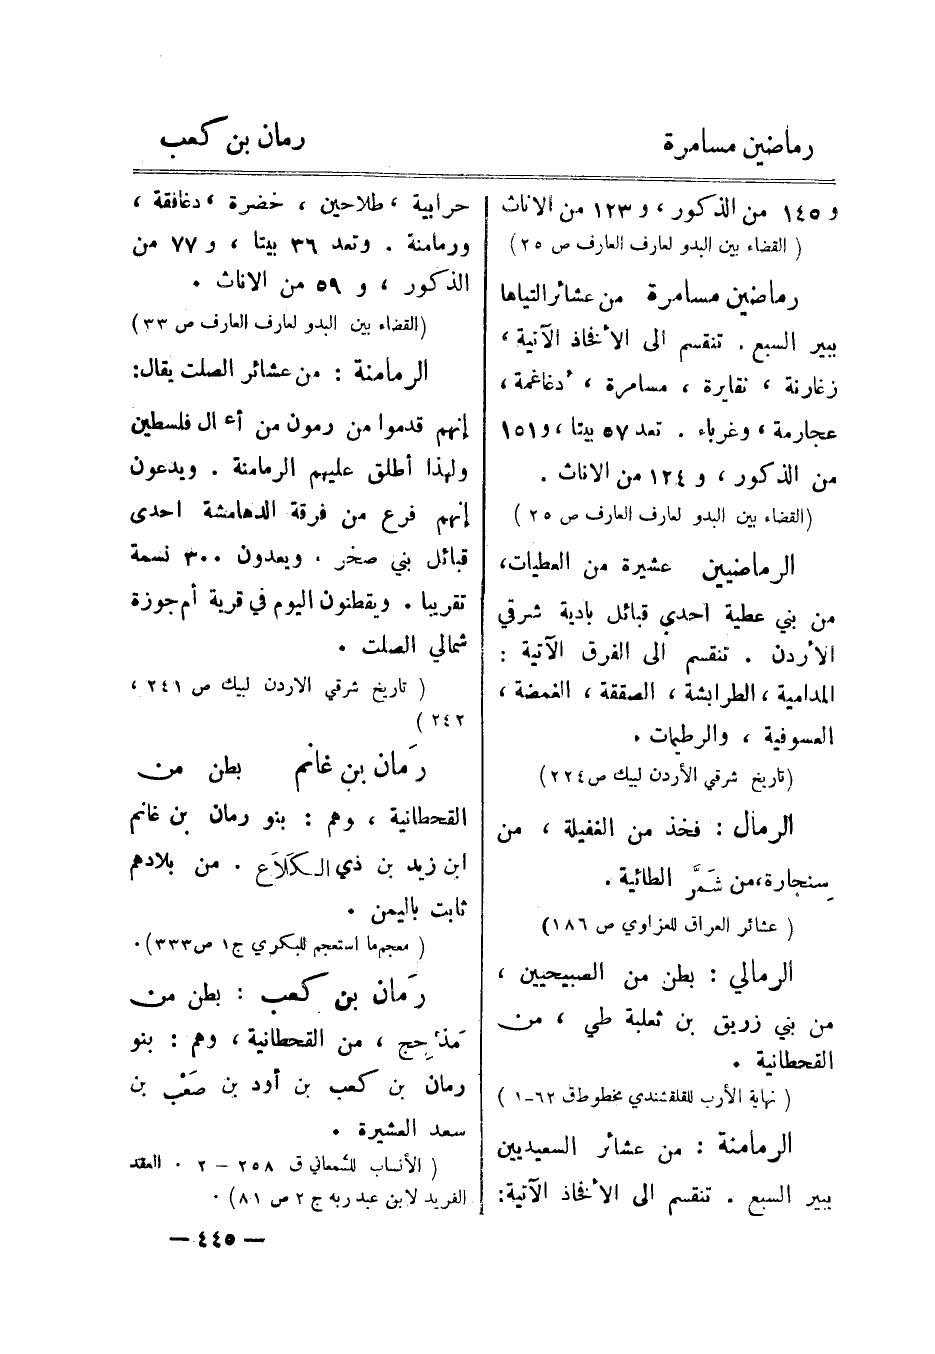 رماضين مسامرة
رمان بن كعب
و ١٤٥ من الذكور ، و ١٢٣ من الاناث
( القضاء بين البدو لعارف العارف ص ٢٥ )
رماضين مسامرة من عشائر التياها
ببير السبع . تنقسم الى الأفخاذ الآتية ،
زغارنة ، نقايرة ، مسامرة ، دغاغمة ،
عجارمة ، وغرباء . تعد ٥٧ بيتا ، و ١٥١
من الذكور ، و ١٢٤ من الاناث .
(القضاء بين البدو لعارف العارف ص ٢٥ )
الرماضيين عشيرة من العطيات،
من بني عطية احدى قبائل بادية شرقي
الأردن . تنقسم الى الفرق الآتية :
المدامية ، الطرابشة ، الصققة ، الغمضة ،
العسوفية ، والرطيات .
(تاريخ شرقي الأردن لبيك ص ٢٢٤ )
الرمال : فخذ من الغفيلة ، من
سنجارة،من شَمَّر الطائية .
( عشائر العراق للعزاوي ص ١٨٦ )
الرمالي : بطن من الصبيحيين ،
من بني زريق بن ثعلبة طي ، من
القحطانية .
( نهاية الأرب للقلقشندي مخطوط ق ٦٢-١ )
الرمامنة : من عشائر السعيديين
ببير السبع . تنقسم الى الأفخاذ الآتية:
حرابية ، طلاحين ، خضرة ، دغافقة ،
ورمامنة . وتعد ٣٦ بيتا ، و ٧٧ من
الذكور ، و ٥٩ من الاناث .
(القضاء بين البدو لعارف العارف ص ٣٣ )
الرمامنة : من عشائر الصلت يقال:
إنهم قدموا من رمون من أعمال فلسطين
ولهذا أطلق عليهم الرمامنة . ويدعون
إنهم فرع من فرقة الدهامشة احدى
قبائل بني صخر . ويعدون ٣٠٠ نسمة
تقريبا . ويقطنون اليوم في قرية أم جوزة
شمالي الصلت .
( تاريخ شرقي الاردن لبيك ص ٢٤١ ،
٢٤٢ )
رَمان بن غانم بطن من
القحطانية ، وهم : بنو رمان بن غانم
ابن زيد بن ذي الكَلَاع . من بلادهم
ثابت باليمن .
( معجم ما استعجم للبكري ج ١ ص ٣٣٣ ) .
رَمان بن كعب : بطن من
مَذْحِج ، من القحطانية ، وهم : بنو
رمان بن كعب بن أود بن صَعْب بن
سعد العشيرة .
( الأنساب للسمعاني ق ٢٥٨ - ٢ . العقد
الفريد لابن عبد ربه ج ٢ ص ٨١ ) .
— ٤٤٥ —